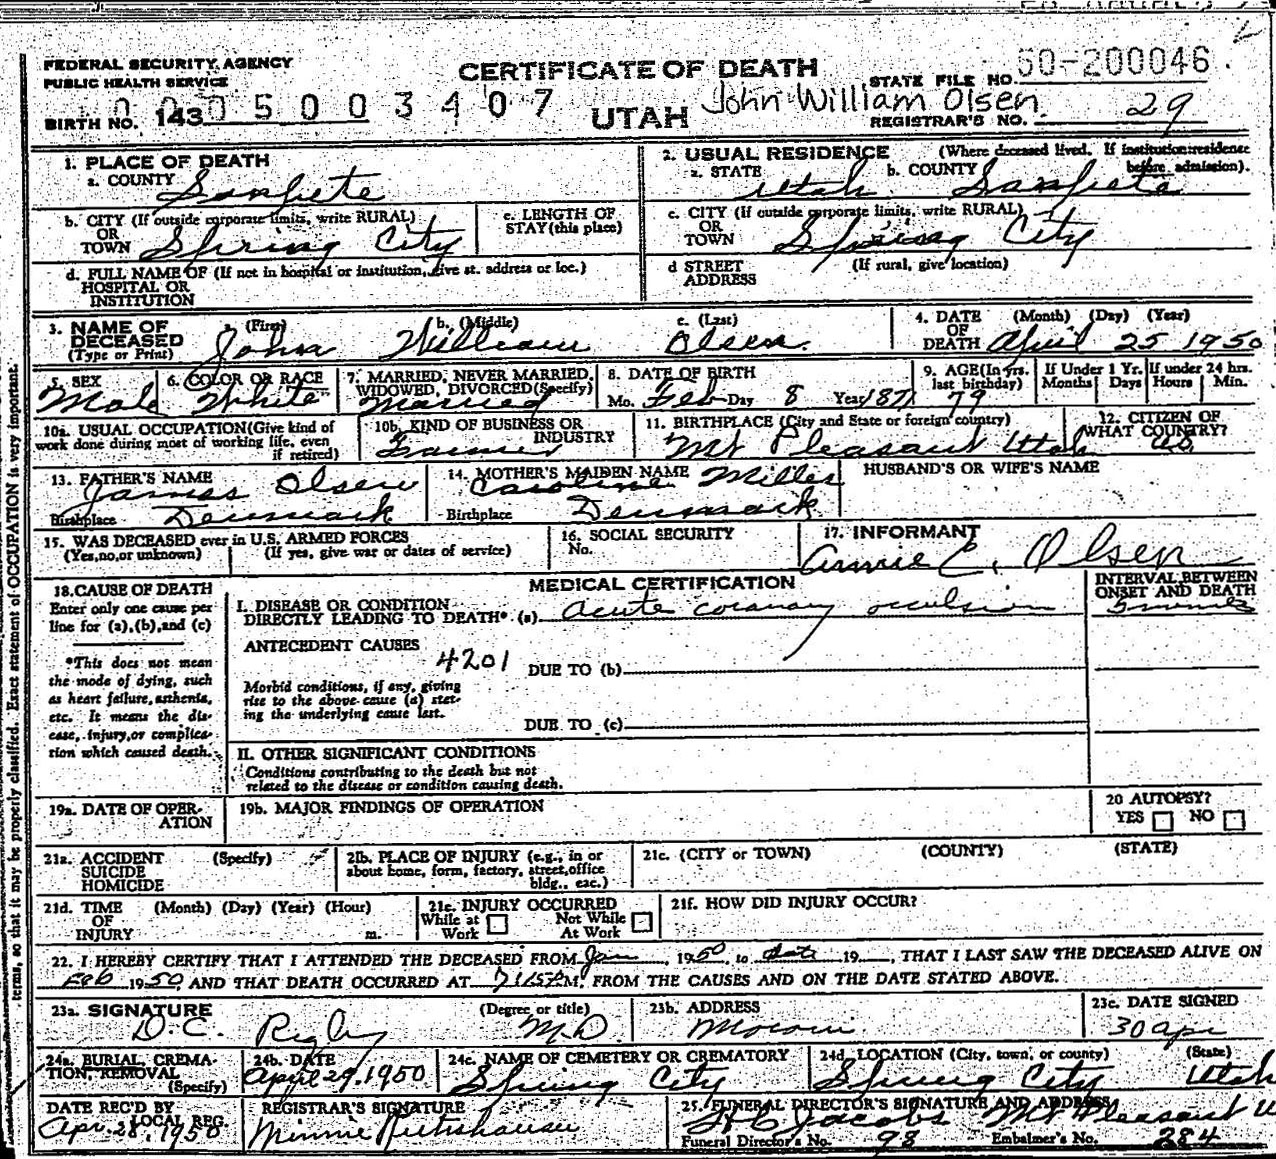 FEDERAL SECURITY AGENCY
PUBLIC HEALTH SERVICE
CERTIFICATE OF DEATH
STATE FILE NO. 50-200046
BIRTH NO. 143 0005003407
UTAH
John William Olsen
REGISTRAR'S NO. 29
1. PLACE OF DEATH
a. COUNTY Sanpete
2. USUAL RESIDENCE (Where deceased lived. If institution: residence before admission).
a. STATE Utah b. COUNTY Sanpete
b. CITY (If outside corporate limits, write RURAL) OR TOWN Spring City
c. LENGTH OF STAY (this place)
c. CITY (If outside corporate limits, write RURAL) OR TOWN Spring City
d. FULL NAME OF (If not in hospital or institution, give st. address or loc.)
HOSPITAL OR
INSTITUTION
d STREET ADDRESS (If rural, give location)
3. NAME OF DECEASED (Type or Print)
a. (First) b. (Middle) c. (Last)
John William Olsen
4. DATE OF DEATH (Month) (Day) (Year)
April 25 1950
5. SEX Male
6. COLOR OR RACE White
7. MARRIED, NEVER MARRIED, WIDOWED, DIVORCED (Specify) Married
8. DATE OF BIRTH
Mo. Feb Day 8 Year 1871
9. AGE (In yrs. last birthday) 79
If Under 1 Yr. Months Days
If under 24 hrs. Hours Min.
10a. USUAL OCCUPATION (Give kind of work done during most of working life, even if retired)
10b. KIND OF BUSINESS OR INDUSTRY Farmer
11. BIRTHPLACE (City and State or foreign country)
Mt Pleasant Utah
12. CITIZEN OF WHAT COUNTRY? U.S.
13. FATHER'S NAME
James Olsen
Birthplace Denmark
14. MOTHER'S MAIDEN NAME
Caroline Miller
Birthplace Denmark
HUSBAND'S OR WIFE'S NAME
15. WAS DECEASED ever in U.S. ARMED FORCES
(Yes, no, or unknown) (If yes, give war or dates of service)
16. SOCIAL SECURITY No.
17. INFORMANT
Annie C. Olsen
18. CAUSE OF DEATH
Enter only one cause per line for (a), (b), and (c)
*This does not mean the mode of dying, such as heart failure, asthenia, etc. It means the disease, injury, or complication which caused death.
MEDICAL CERTIFICATION
INTERVAL BETWEEN ONSET AND DEATH
I. DISEASE OR CONDITION
DIRECTLY LEADING TO DEATH* (a) acute coronary occulsion
ANTECEDENT CAUSES
4201
DUE TO (b)
Morbid conditions, if any, giving rise to the above cause (a) stating the underlying cause last.
DUE TO (c)
II. OTHER SIGNIFICANT CONDITIONS
Conditions contributing to the death but not related to the disease or condition causing death.
19a. DATE OF OPERATION
19b. MAJOR FINDINGS OF OPERATION
20 AUTOPSY?
YES NO
21a. ACCIDENT (Specify)
SUICIDE
HOMICIDE
21b. PLACE OF INJURY (e.g., in or about home, farm, factory, street, office bldg., etc.)
21c. (CITY or TOWN) (COUNTY) (STATE)
21d. TIME OF INJURY (Month) (Day) (Year) (Hour) m.
21e. INJURY OCCURRED
While at Work Not While At Work
21f. HOW DID INJURY OCCUR?
22. I HEREBY CERTIFY THAT I ATTENDED THE DECEASED FROM Jan, 1950, to date 19, THAT I LAST SAW THE DECEASED ALIVE ON
Feb 1950 AND THAT DEATH OCCURRED AT 7:15P M. FROM THE CAUSES AND ON THE DATE STATED ABOVE.
23a. SIGNATURE (Degree or title)
D. C. Rigby M.D
23b. ADDRESS
Moroni
23c. DATE SIGNED
30 Apr
24a. BURIAL, CREMATION, REMOVAL (Specify)
24b. DATE
April 29, 1950
24c. NAME OF CEMETERY OR CREMATORY
Spring City
24d. LOCATION (City, town, or county) (State)
Spring City Utah
DATE REC'D BY LOCAL REG.
Apr. 28, 1950
REGISTRAR'S SIGNATURE
Minnie
25. FUNERAL DIRECTOR'S SIGNATURE AND ADDRESS
Jacobs Mt Pleasant U
Funeral Director's No. 98 Embalmer's No. 284
terms, so that it may be properly classified. Exact statement of OCCUPATION is very important.